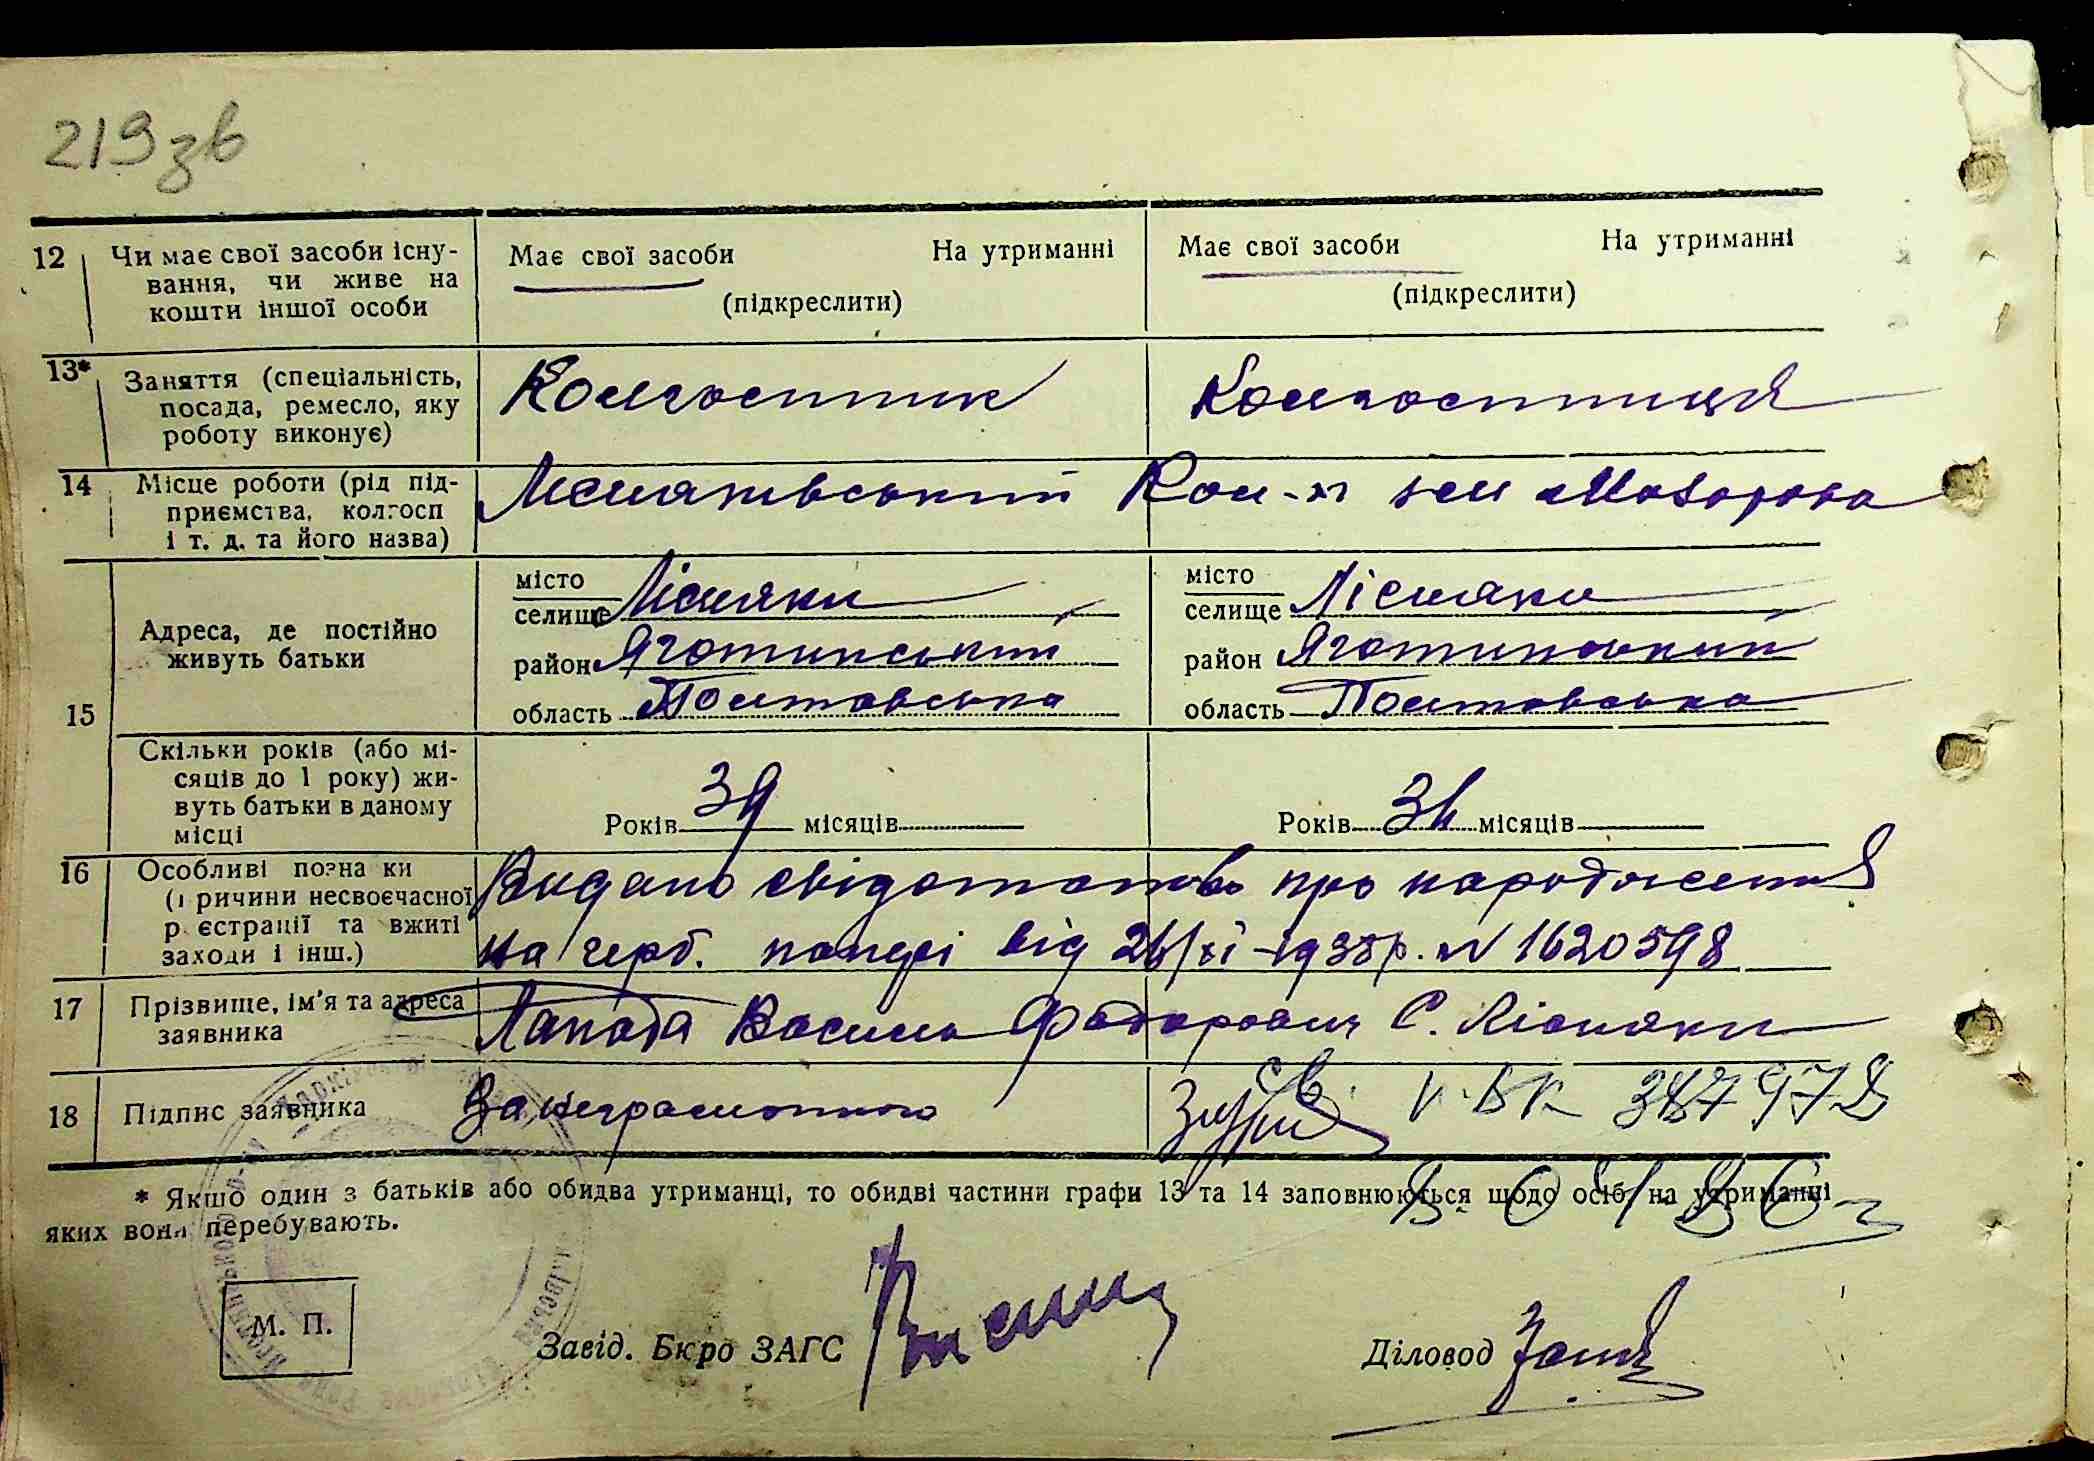 219зв
12 Чи має свої засоби існу-
вання, чи живе на
кошти іншої особи
Має свої засоби На утриманні
(підкреслити)
Має свої засоби На утриманні
(підкреслити)
13* Заняття (спеціальність,
посада, ремесло, яку
роботу виконує)
Колгоспник
Колгоспниця
14 Місце роботи (рід під-
приємства, колгосп
і т. д. та його назва)
Лісняківський Кол-п
15 Адреса, де постійно
живуть батьки
місто
селище Лісняки
район Яготинський
область Полтавська
місто
селище Лісняки
район Яготинський
область Полтавська
Скільки років (або мі-
сяців до 1 року) жи-
вуть батьки в даному
місці
Років 39 місяців
Років місяців
16 Особливі позна ки
(п ричини несвоєчасної
р єстрації та вжиті
заходи і інш.)
Видано свідотство про народження
на герб. папері від 26/XI-1938р. N 1620598
17 Прізвище, ім'я та адреса
заявника
Лапота Василь Федорович С. Лісняки
18 Підпис заявника
За неграмотного
* Якшо один з батьків або обидва утриманці, то обидві частини графи 13 та 14 заповнюються щодо осіб, на утриманні
яких вони перебувають.
М. П.
Завід. Бюро ЗАГС
Діловод